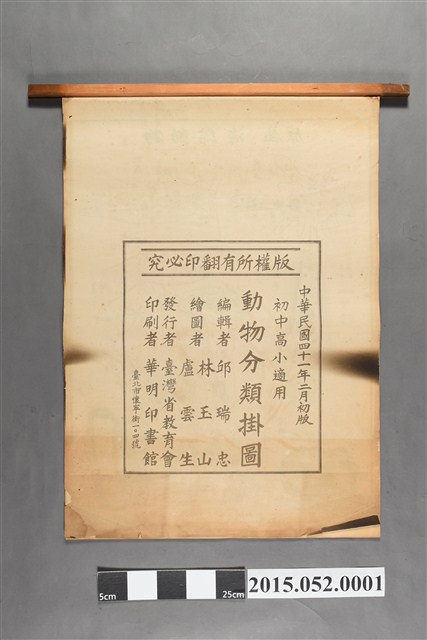 版權所有翻印必究
中華民國四十一年二月初版
初中高小適用
動物分類掛圖
編輯者 邱瑞忠
繪圖者 林玉山
盧雲生
發行者 臺灣省教育會
印刷者 華明印書館
臺北市懷寧街一〇四號
5cm 25cm
2015.052.0001